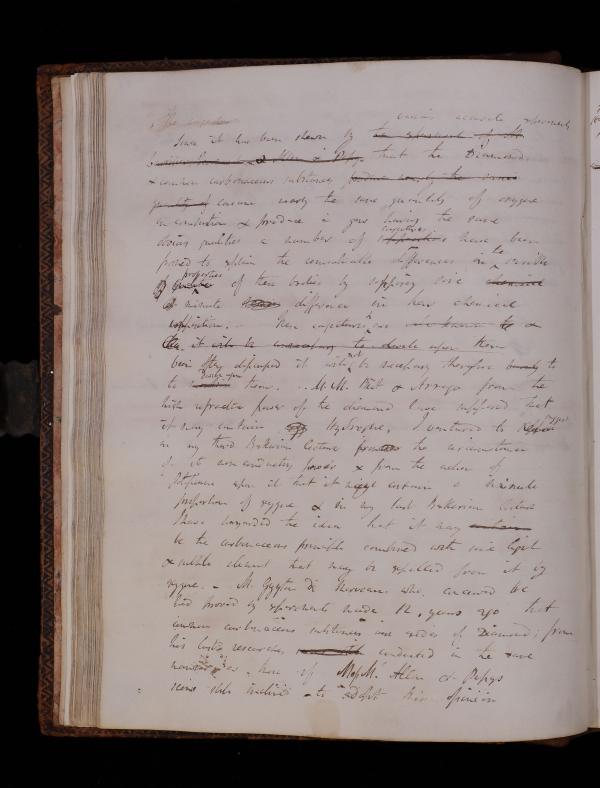 various accurate experiments
Since it has been shewn by the experiments of the
& Allen & Pepys that the Diamond
& common carbonaceous substances produce nearly the same
quantity of consume nearly the same quantity of oxygene
in combustion & produce a gas having the same
obvious qualities a number of conjectures have been
formed to explain the remarkable differences in the sensible
properties of these bodies by supposing some chemical
minute difference in their chemical
composition. These conjectures are &
it will be necessary to dwell upon them
been often discussed it will not be necessary therefore to
to dwell upon them. M.M. Biot & Arrago from the
high refractive power of the diamond have supposed that
it may contain Hydrogene, I ventured to suggest
in my third Bakerian lecture from the circumstance
of its non conducting power & from the action of
Potassium upon it that it might contain a minute
proportion of oxygene & in my last Bakerian lecture
I have hazarded the idea that it may
be the carbonaceous principle combined with some light
& subtile element that may be expelled from it by
oxygene. - M. Guyton de Morveau who conceived he
had proved by experiments made 12 years ago that
common carbonaceous substances are oxides of Diamond; from
his last researches conducted in the same
manner as those of Mess.rs Allen & Pepys
seems still inclined to adopt this opinion